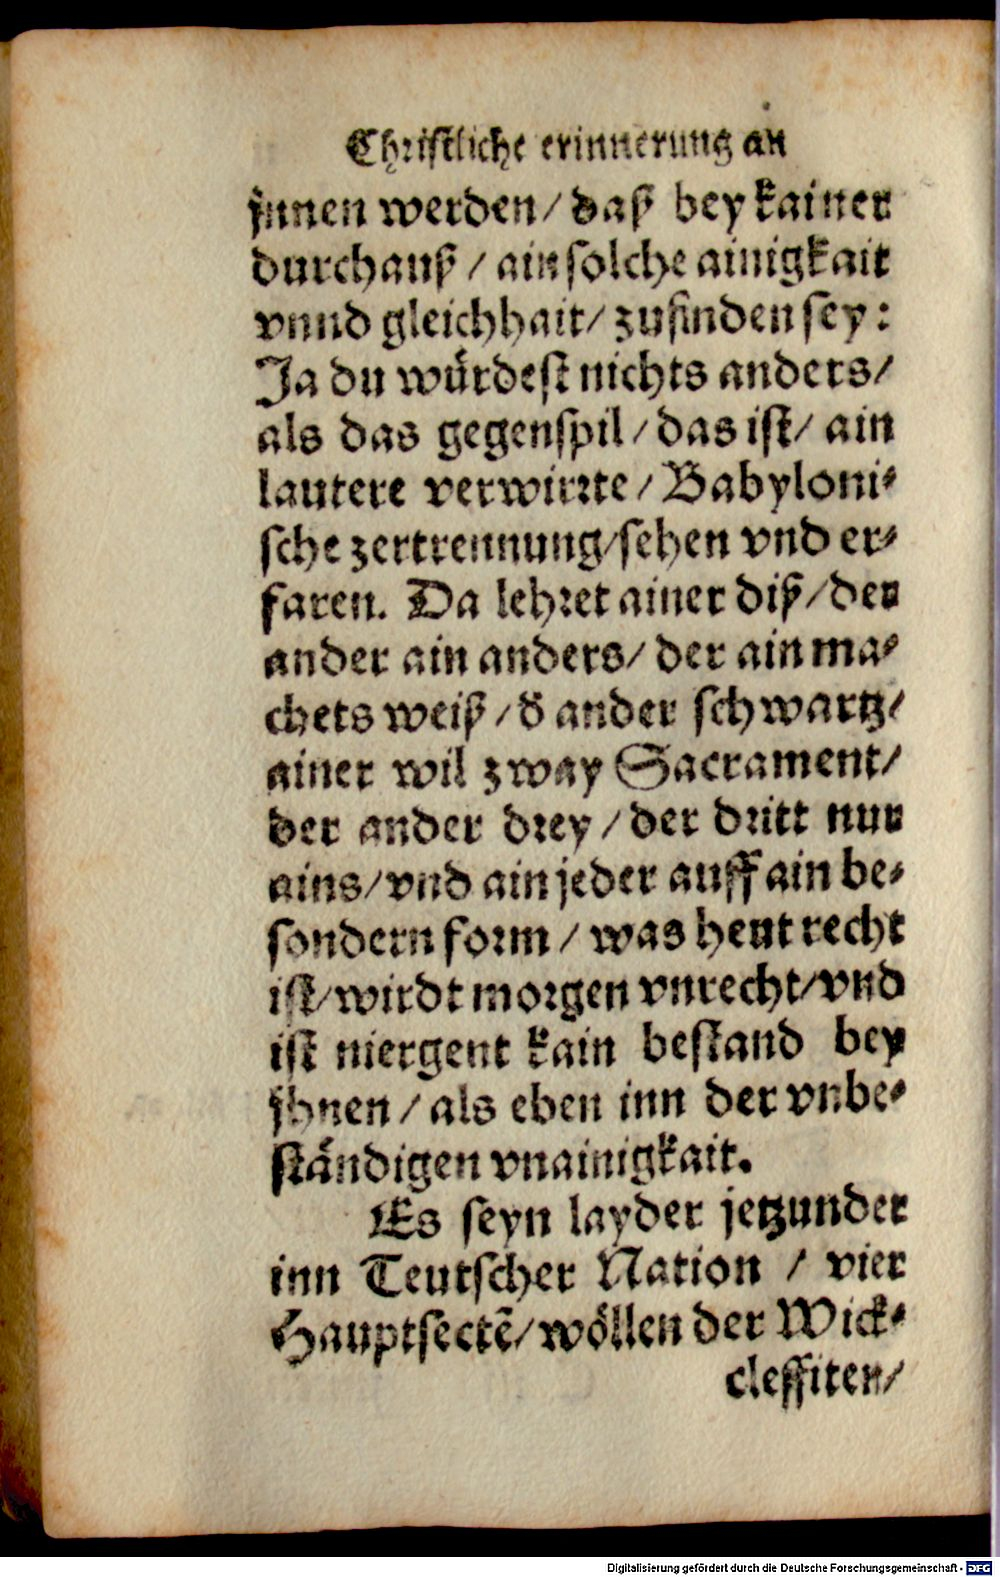 Christliche erinnerung an
jnnen werden / daß bey kainer
durchauß / ain solche ainigkait
vnnd gleichhait / zufinden sey :
Ja du würdest nichts anders /
als das gegenspil / das ist / ain
lautere verwirrte / Babyloni⸗
sche zertrennung / sehen vnd er⸗
faren. Da lehret ainer diß / der
ander ain anders / der ain ma⸗
chets weiß / d̄ ander schwartz /
ainer wil zway Sacrament /
der ander drey / der dritt nur
ains / vnd ain jeder auff ain be⸗
sondern form / was heut recht
ist / wirdt morgen vnrecht / vnd
ist niergent kain bestand bey
jhnen / als eben inn der vnbe⸗
ständigen vnainigkait.
Es seyn layder jetzunder
inn Teutscher Nation / vier
Hauptsectē / wöllen der Wick⸗
cleffiten /
Digitalisierung gefördert durch die Deutsche Forschungsgemeinschaft - DFG